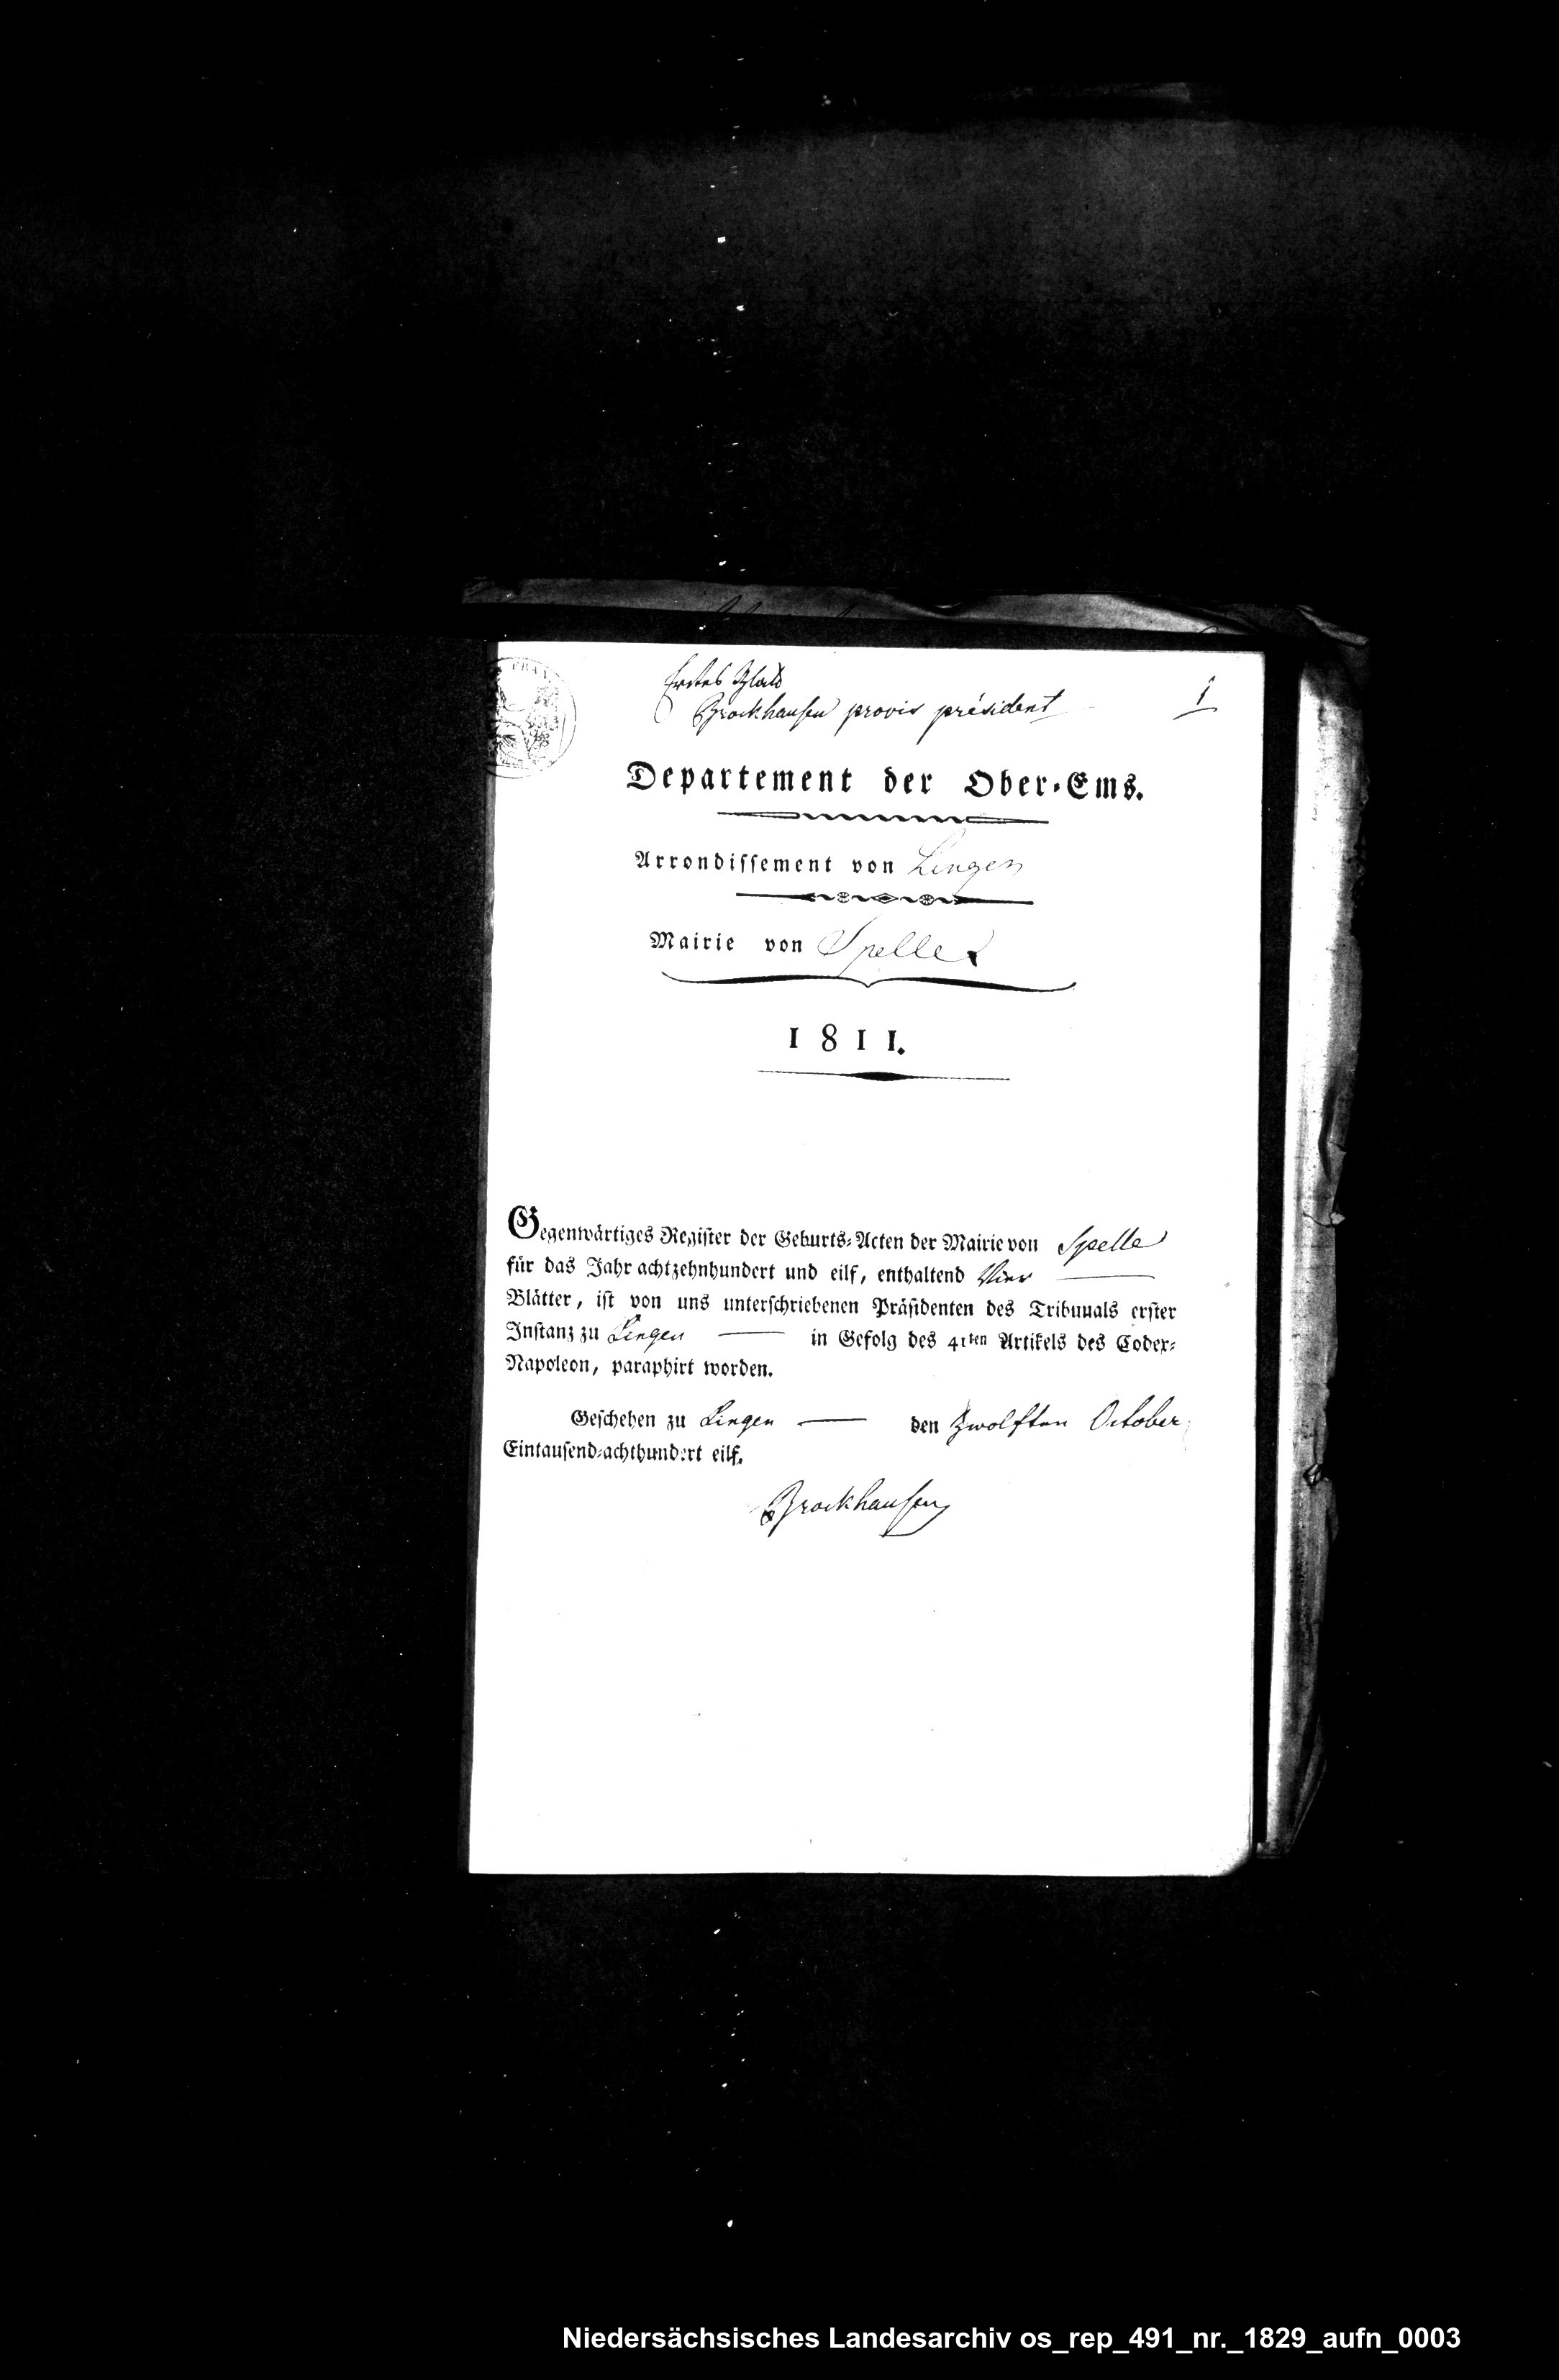 Erstes Blatt
Brockhausen provis président
1
FRAN
Departement der Ober-Ems.
Arrondissement von Lingen
Mairie von Spelle
1811.
Gegenwärtiges Register der Geburts-Acten der Mairie von Spelle
für das Jahr achtzehnhundert und eilf, enthaltend Vier
Blätter, ist von uns unterschriebenen Präsidenten des Tribunals erster
Instanz zu Lingen in Gefolg des 41ten Artikels des Codex-
Napoleon, paraphirt worden.
Geschehen zu Lingen den Zwolften October
Eintausend-achthundert eilf.
Brockhausen
Niedersächsisches Landesarchiv os_rep_491_nr._1829_aufn_0003